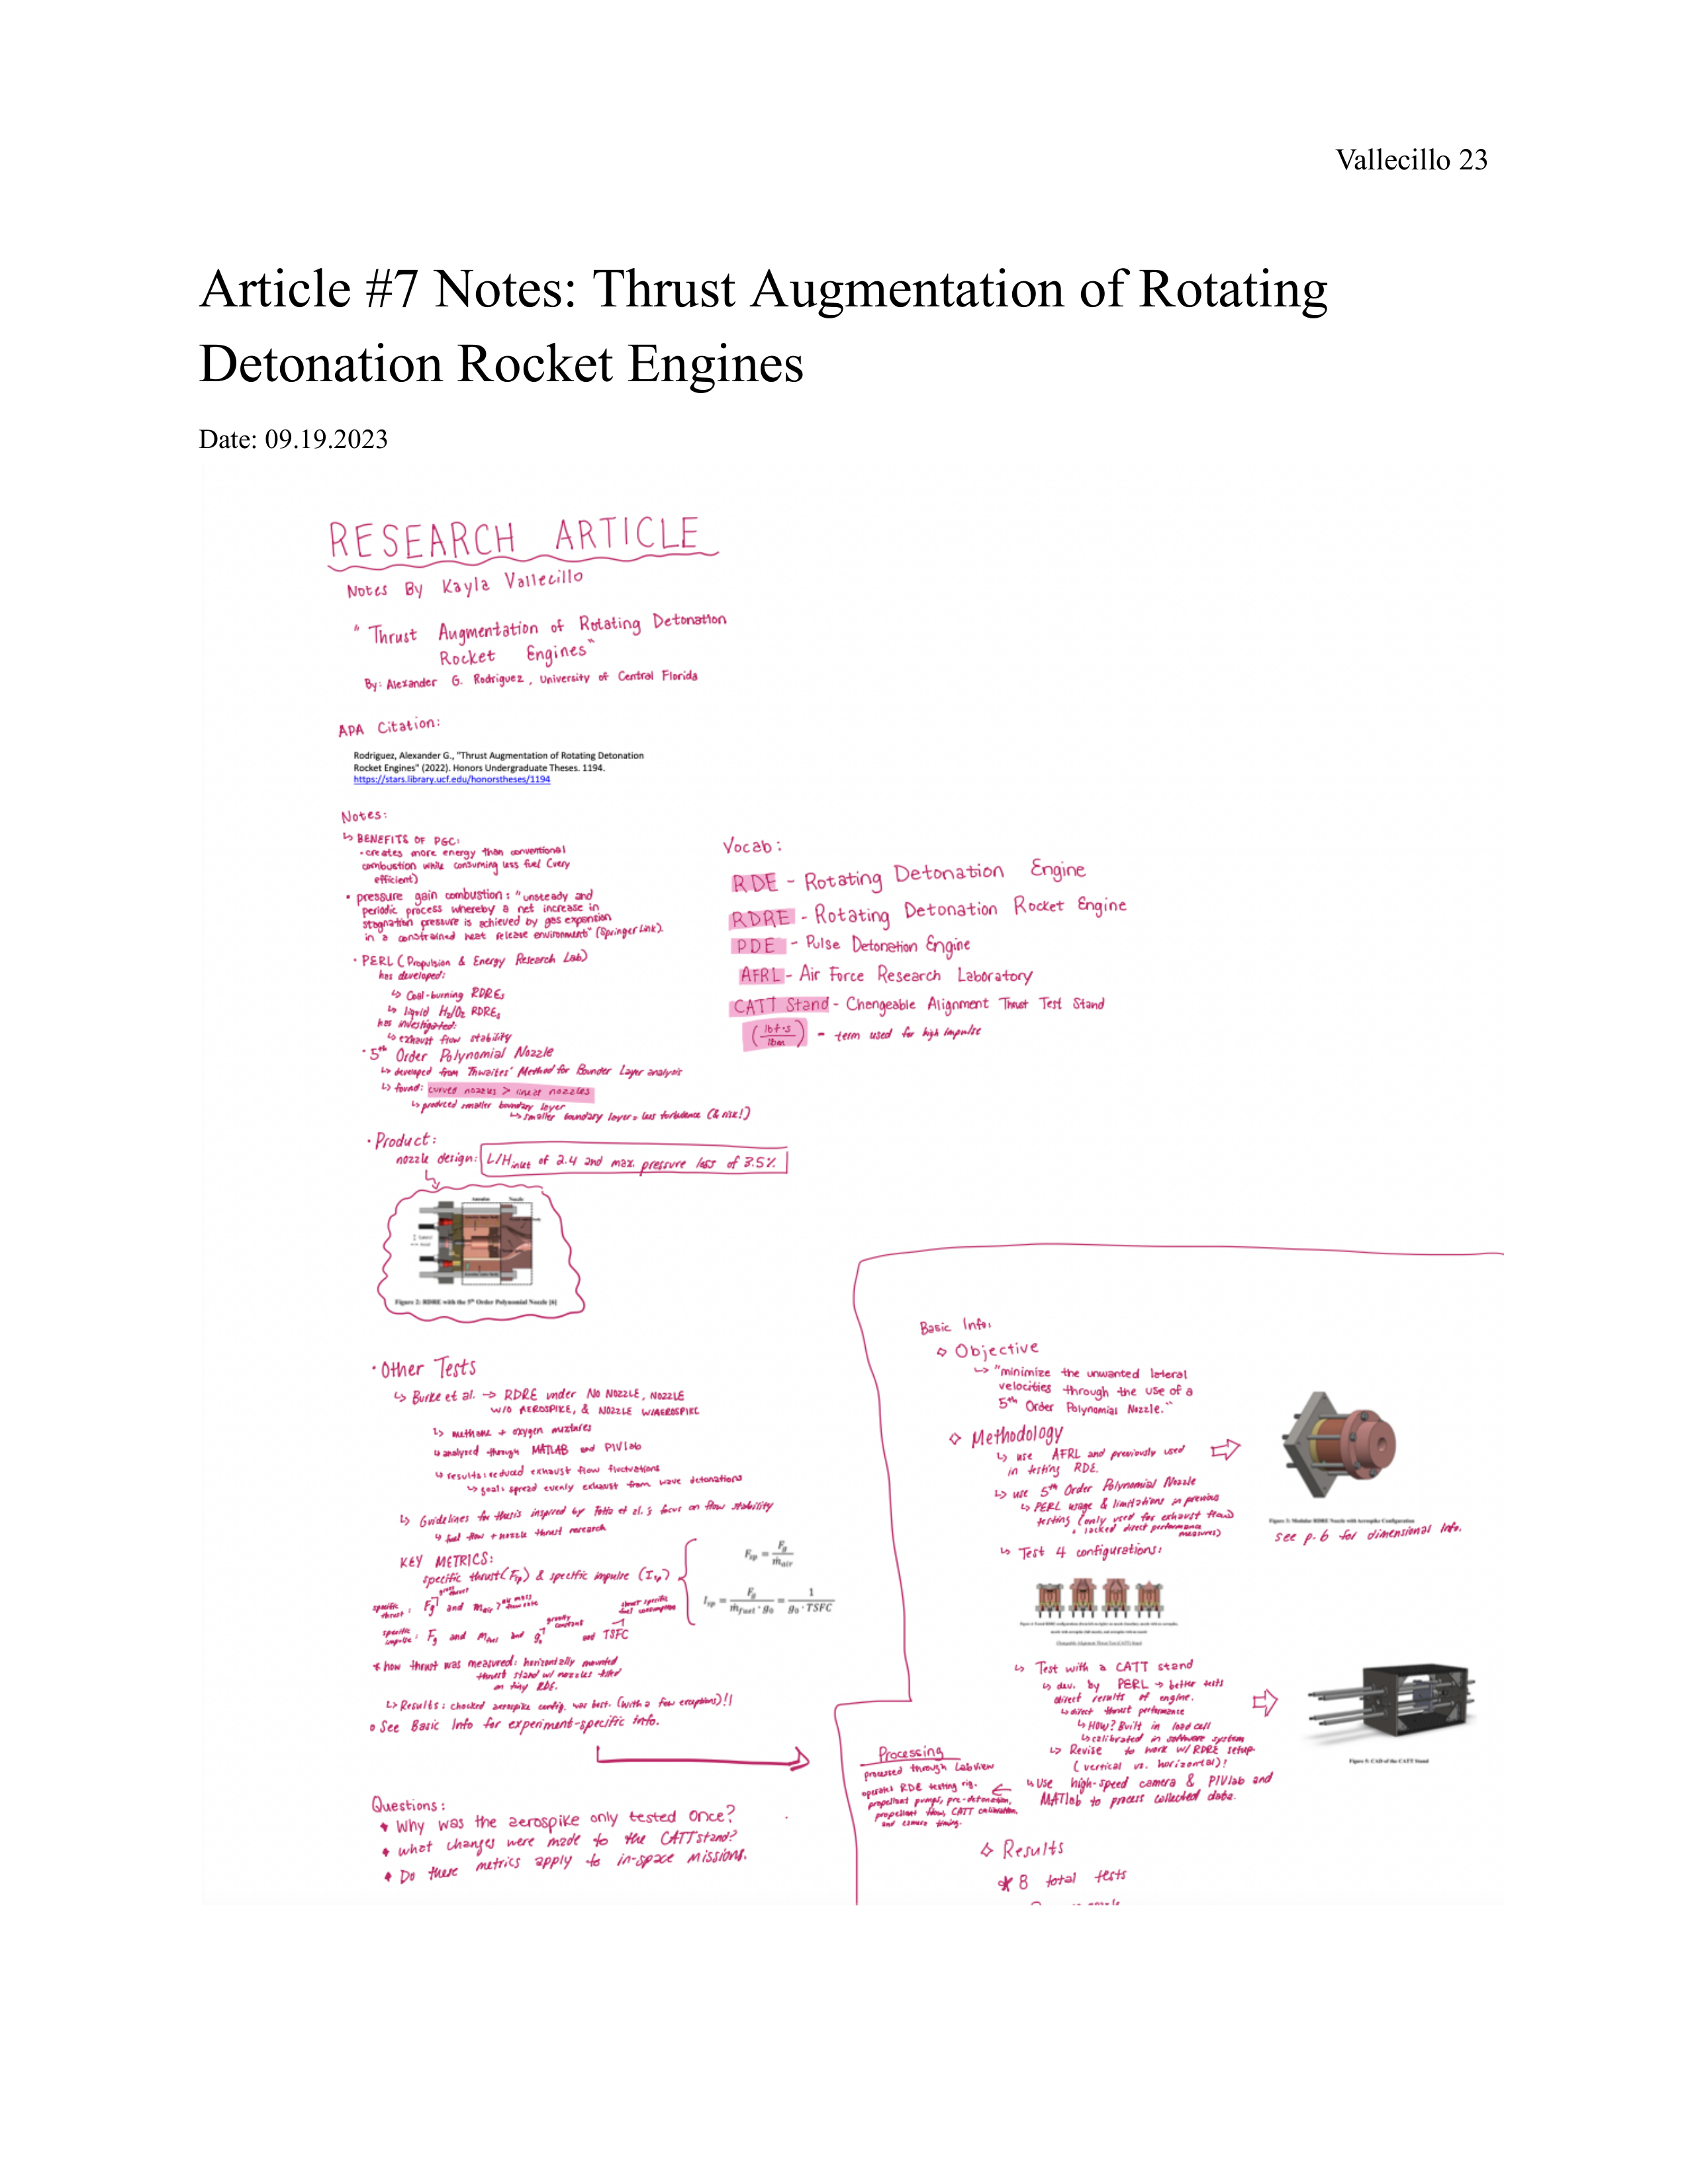 Vallecillo 23
Article #7 Notes: Thrust Augmentation of Rotating
Detonation Rocket Engines
Date: 09.19.2023
RESEARCH ARTICLE
Notes By Kayla Vallecillo
"Thrust Augmentation of Rotating Detonation
Rocket Engines"
By: Alexander G. Rodriguez, University of Central Florida
APA Citation:
Rodriguez, Alexander G., "Thrust Augmentation of Rotating Detonation
Rocket Engines" (2022). Honors Undergraduate Theses. 1194.
https://stars.library.ucf.edu/honorstheses/1194
Notes:
↳ BENEFITS OF PGC:
• creates more energy than conventional
combustion while consuming less fuel (very
efficient)
• pressure gain combustion: "unsteady and
periodic process whereby a net increase in
stagnation pressure is achieved by gas expansion
in a constrained heat release environment" (Springer Link).
• PERL (Propulsion & Energy Research Lab)
has developed:
↳ Coal-burning RDREs
↳ liquid H2/O2 RDREs
has investigated:
↳ exhaust flow stability
• 5th Order Polynomial Nozzle
↳ developed from Thwaites' Method for Bounder Layer analysis
↳ found: curved nozzles > linear nozzles
↳ produced smaller boundary layer
↳ smaller boundary layer = less turbulence (& risk!)
• Product:
nozzle design: L/Hinlet of 2.4 and max. pressure loss of 3.5%
Aerospike Nozzle
Figure 2: RDRE with the 5th Order Polynomial Nozzle [6]
Vocab:
RDE - Rotating Detonation Engine
RDRE - Rotating Detonation Rocket Engine
PDE - Pulse Detonation Engine
AFRL - Air Force Research Laboratory
CATT Stand - Changeable Alignment Thrust Test Stand
(lbf·s/lbm) - term used for high impulse
• Other Tests
↳ Burke et al. → RDRE under NO NOZZLE, NOZZLE
W/O AEROSPIKE, & NOZZLE W/AEROSPIKE
↳ methane + oxygen mixtures
↳ analyzed through MATLAB and PIVlab
↳ results: reduced exhaust flow fluctuations
↳ goal: spread evenly exhaust from wave detonations
↳ Guidelines for thesis inspired by et al.'s focus on flow stability
↳ fuel flow + nozzle thrust research
KEY METRICS:
specific thrust (Fsp) & specific impulse (Isp)
Fsp = Fg / ṁair
Isp = Fg / (ṁfuel · g0) = 1 / (g0 · TSFC)
specific thrust: Fg gross thrust and mair air mass flow rate
specific impulse: Fg and mfuel and g0 gravity constant and TSFC thrust specific fuel consumption
* how thrust was measured: horizontally mounted
thrust stand w/ nozzles tested
on tiny RDE.
↳ Results: chocked aerospike config. was best. (with a few exceptions)!!
o See Basic Info for experiment-specific info.
Questions:
* Why was the aerospike only tested once?
* what changes were made to the CATT stand?
* Do these metrics apply to in-space missions.
Basic Info:
◇ Objective
↳ "minimize the unwanted lateral
velocities through the use of a
5th Order Polynomial Nozzle."
◇ Methodology
↳ use AFRL and previously used
in testing RDE.
↳ use 5th Order Polynomial Nozzle
↳ PERL usage & limitations in previous
testing (only used for exhaust flow)
lacked direct performance
measures)
↳ Test 4 configurations:
Figure 3: Modular RDRE Nozzle with Aerospike Configuration
see p. 6 for dimensional info.
↳ Test with a CATT stand
↳ dev. by PERL → better tests
direct results of engine.
↳ direct thrust performance
↳ HOW? Built in load cell
↳ calibrated in software system
↳ Revise to work w/ RDRE setup
(vertical vs. horizontal)!
Figure 5: CAD of the CATT Stand
↳ Use high-speed camera & PIVlab and
MATlab to process collected data.
Processing
processed through LabView
operates RDE testing rig.
propellant pumps, pre-detonation,
propellant flow, CATT calibration,
and camera timing.
◇ Results
* 8 total tests